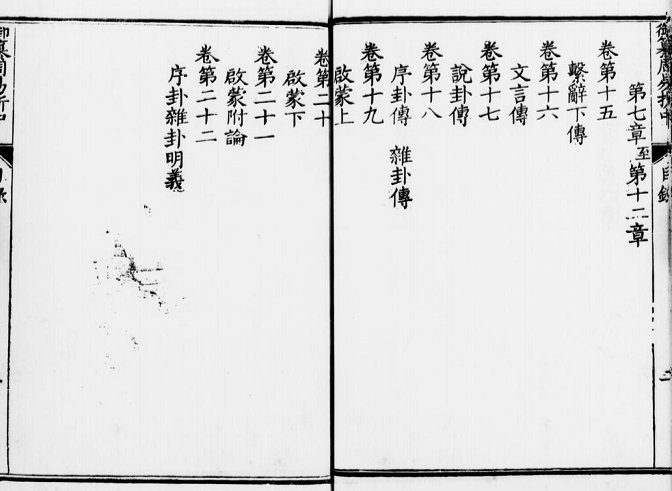 第七章至第十二章
卷第十五
繫辭下傳
卷第十六
文言傳
卷第十七
說卦傳
卷第十八
序卦傳 雜卦傳
卷第十九
啟蒙上
卷第二十
啟蒙下
卷第二十一
啟蒙附論
卷第二十二
序卦雜卦明義